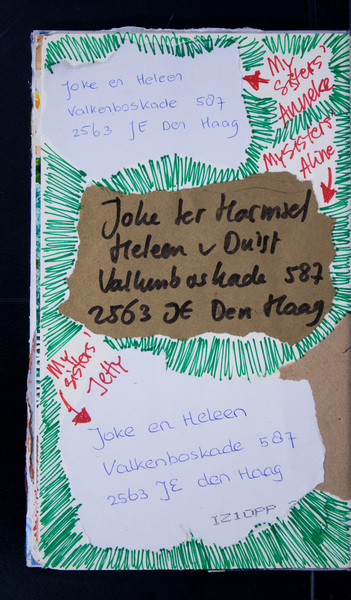 Joke en Heleen
Valkenboskade 587
2563 JE Den Haag
My
sisters'
Anneke
My sisters'
Aline
Joke ter Harmsel
Heleen v Duist
Valkenboskade 587
2563 JE Den Haag
My
sisters'
Jetty
Joke en Heleen
Valkenboskade 587
2563 JE den Haag
IZ10PP